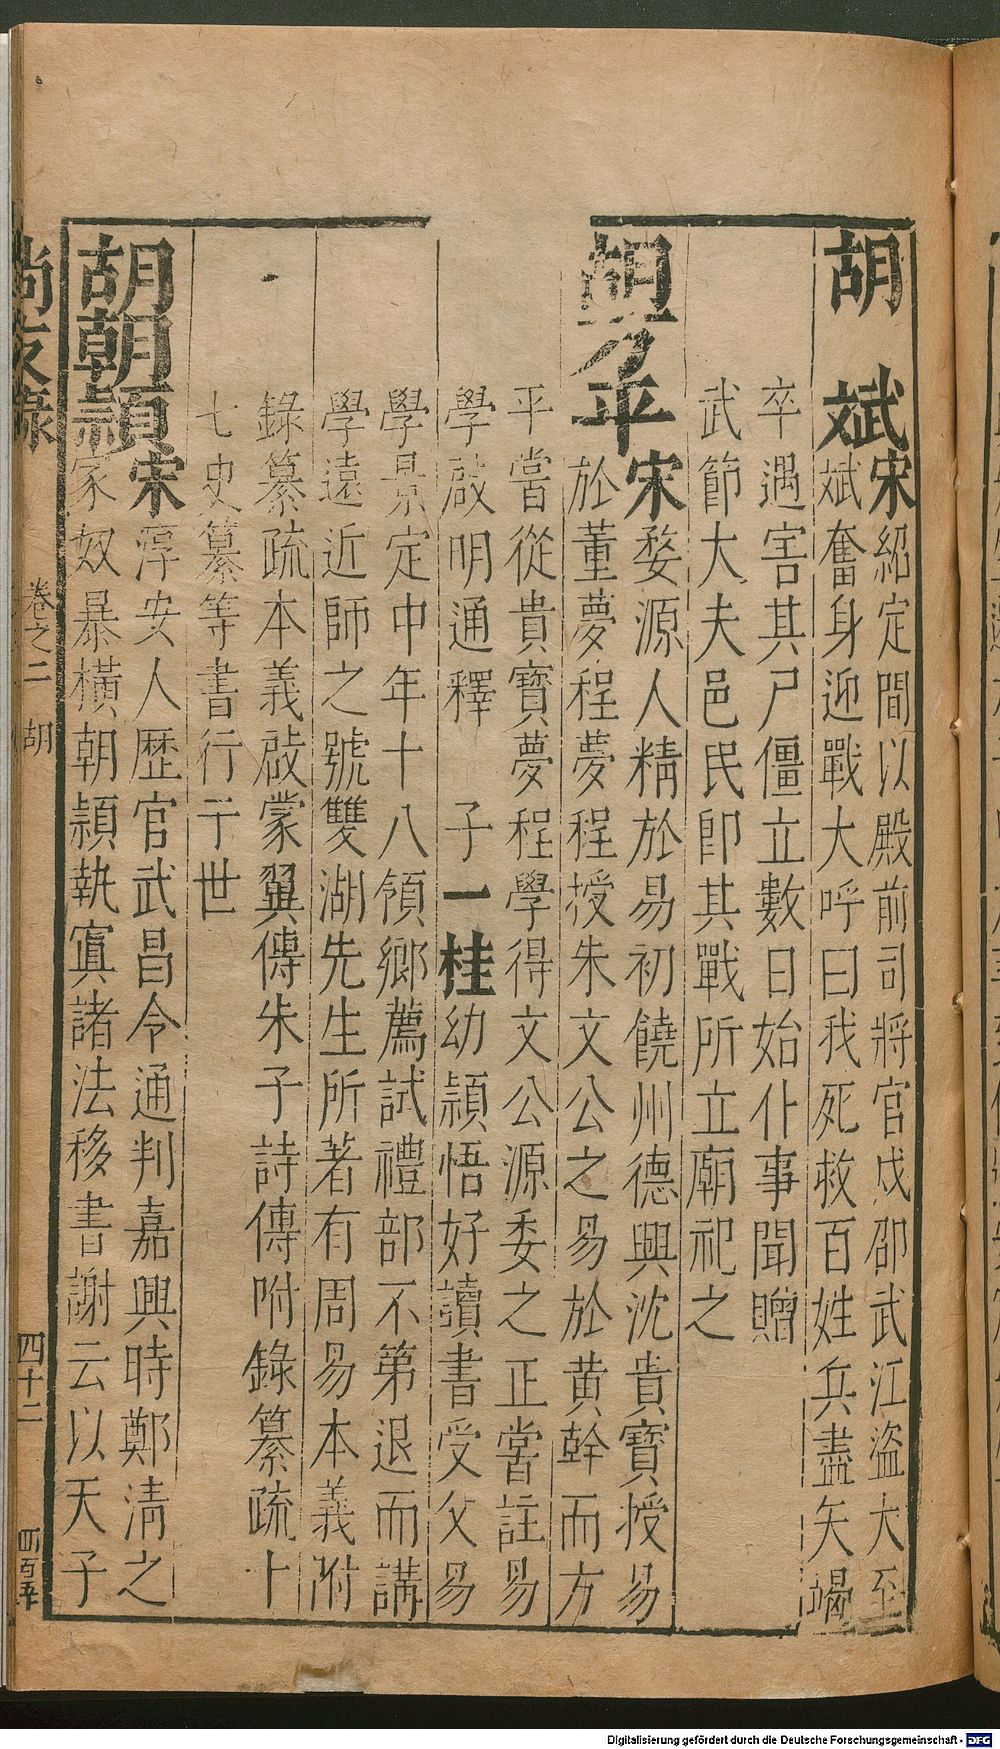 胡 斌宋紹定間以殿前司將官戍邵武江盜大至
斌奮身迎戰大呼曰我死救百姓兵盡矢竭
卒遇害其尸僵立數日始仆事聞贈
武節大夫邑民卽其戰所立廟祀之
胡方平宋婺源人精於易初饒州德興沈貴寶授易
於董夢程夢程授朱文公之易於黄幹而方
平嘗從貴寶夢程學得文公源委之正嘗註易
學啟明通釋 子一桂幼穎悟好讀書受父易
學景定中年十八領鄉薦試禮部不第退而講
學遠近師之號雙湖先生所著有周易本義附
錄纂疏本義啟蒙翼傳朱子詩傳附錄纂疏十
七史纂等書行于世
胡朝穎宋淳安人歷官武昌令通判嘉興時鄭清之
家奴暴橫朝穎執寘諸法移書謝云以天子
尚友錄 卷之二 胡 四十二
Digitalisierung gefördert durch die Deutsche Forschungsgemeinschaft - DFG